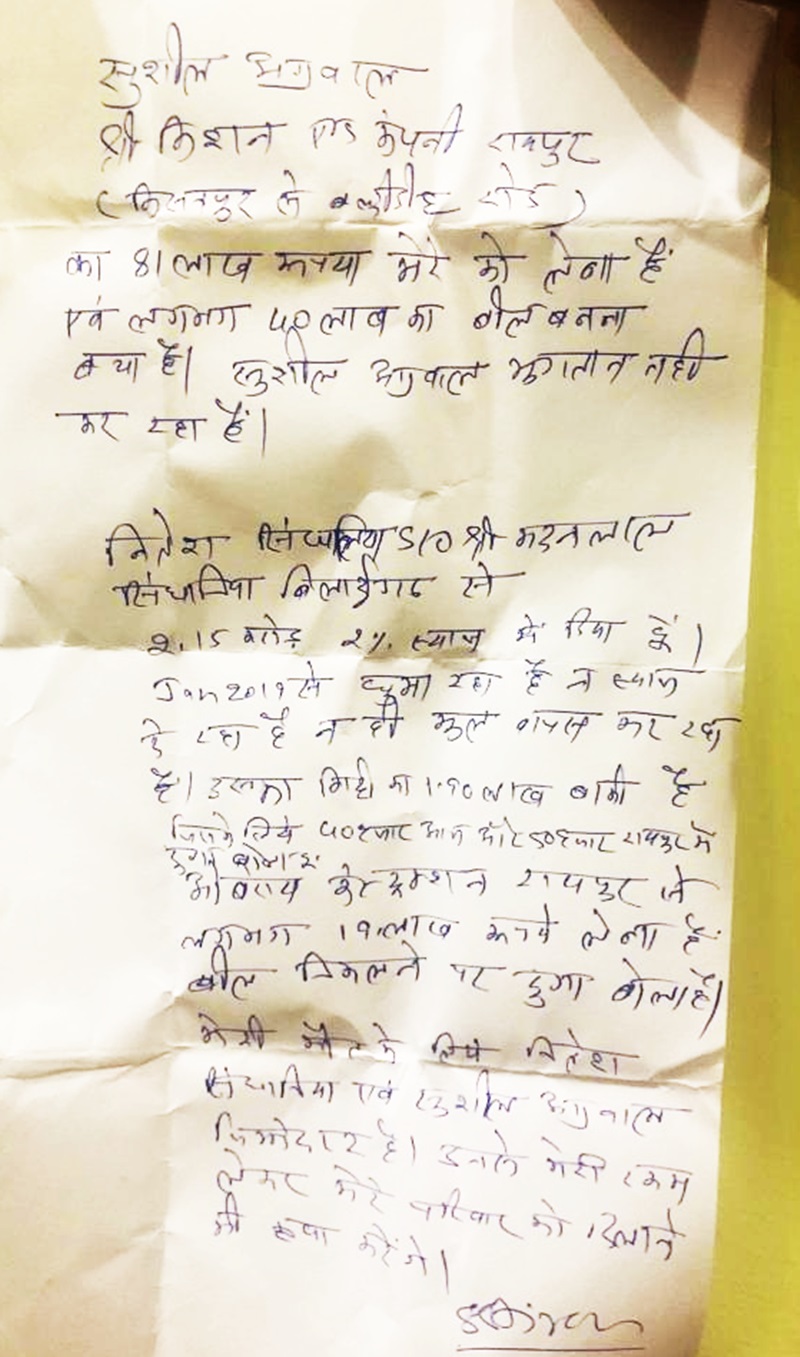 सुशील अग्रवाल
श्री किशन एण्ड कंपनी रायपुर
( से रोड )
का 81 लाख रूपया मेरे को लेना हैं
एवं लगभग 40 लाख का बील बनना
बचा है। सुशील अग्रवाल भुगतान नही
कर रहा हैं।
नितेश सिंघानिया S/o श्री मदनलाल
सिंघानिया बिलाईगढ
2.15 करोड़ 2% ब्याज में दिया हूँ।
Jan 2019 से घुमा रहा है न ब्याज
दे रहा है न ही मुल वापस कर रहा
है। उसका मिट्टी का 1.90 लाख बाकी है
जिसके लिये 40 हजार आज और 50 हजार रायपुर में
दुंगा बोला है
रायपुर से
लगभग 19 लाख रूपये लेना है
बील निकलने पर दुंगा बोला है।
मेरी मौत के लिये नितेश
सिंघानिया एवं सुशील अग्रवाल
जिम्मेदार है। इनसे मेरी रकम
लेकर मेरे परिवार को दिलाने
की कृपा करेंगे।